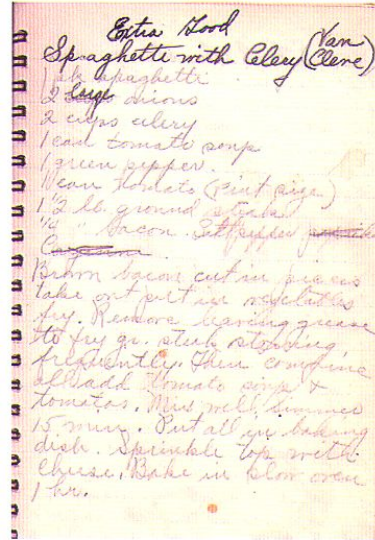 Extra Good
Spaghetti with Celery (Van Cleve)
1 pk spaghetti
2 large onions
2 cups celery
1 can tomato soup
1 green pepper.
1 can tomato (Pint size)
1 1/2 lb. ground steak
1/4 " bacon. Salt pepper
Brown bacon cut in pieces
take out put in vegetables
fry. Remove leaving grease
to fry gr. steak stirring
frequently. Then combine
all add tomato soup &
tomatos. Mix well, simmer
15 min. Put all in baking
dish. Sprinkle top with
cheese. Bake in slow oven
1 hr.